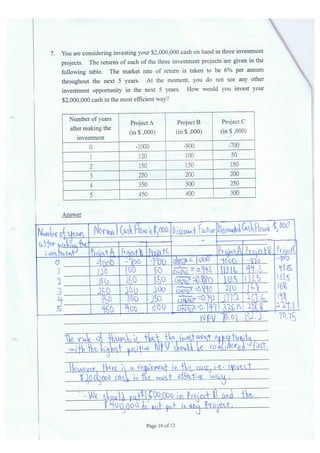 7. You are considering investing your $2,000,000 cash on hand in three investment
projects. The returns of each of the three investment projects are given in the
following table. The market rate of return is taken to be 6% per annum
throughout the next 5 years. At the moment, you do not see any other
investment opportunity in the next 5 years. How would you invest your
$2,000,000 cash in the most efficient way?
Number of years after making the investment Project A (in $ ,000) Project B (in $ ,000) Project C (in $ ,000)
0 -1000 -800 -700
1 120 100 50
2 150 150 150
3 250 200 200
4 350 300 250
5 450 400 300
Answer
Number of years after making the investment Normal Cash Flow in $,000 Discount Factor Discounted Cash Flow in $,000
Project A Project B Project C Project A Project B Project C
0 -1000 -800 -700 = 1.000 -1000 -800 -700
1 120 100 50 = 0.943
2 150 150 150 133.5 133.5 133.5
3 250 200 200 = 0.840 210 168 168
4 350 300 250 198
5 450 400 300
NPV
The rule of thumb is that the investment opportunity
with the highest positive NPV should be considered first.
However, there is a requirement in this case, i.e. invest
cash in the most effective way.
We should put in Project B and the
$400,000 do not put in any Project.
Page 10 of 12